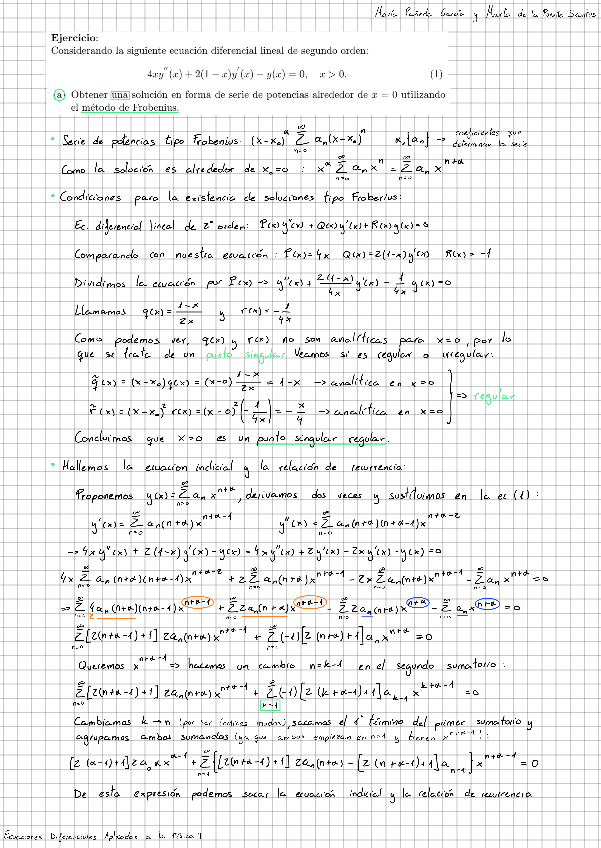 María Peñeda García y Marta de la Puente Santos
Ejercicio:
Considerando la siguiente ecuación diferencial lineal de segundo orden:
4xy''(x) + 2(1 − x)y'(x) − y(x) = 0, x > 0, (1)
(a) Obtener una solución en forma de serie de potencias alrededor de x = 0 utilizando
el método de Frobenius.
• Serie de potencias tipo Frobenius: (x-x₀)^α Σ_{n=0}^∞ aₙ(x-x₀)ⁿ α,{aₙ} → coeficientes que
determinan la serie
Como la solución es alrededor de x₀=0 : x^α Σ_{n=0}^∞ aₙ xⁿ = Σ_{n=0}^∞ aₙ x^{n+α}
• Condiciones para la existencia de soluciones tipo Frobenius:
Ec. diferencial lineal de 2º orden: P(x)y''(x) + Q(x)y'(x) + R(x)y(x) = 0
Comparando con nuestra ecuación : P(x) = 4x Q(x) = 2(1-x)y'(x) R(x) = -1
Dividimos la ecuación por P(x) → y''(x) + \frac{2(1-x)}{4x} y'(x) - \frac{1}{4x} y(x) = 0
Llamamos q(x) = \frac{1-x}{2x} y r(x) = -\frac{1}{4x}
Como podemos ver, q(x) y r(x) no son analíticas para x=0, por lo
que se trata de un punto singular. Veamos si es regular o irregular:
q̃(x) = (x-x₀)q(x) = (x-0) \frac{1-x}{2x} = 1-x → analítica en x=0
r̃(x) = (x-x₀)² r(x) = (x-0)² (-\frac{1}{4x}) = -\frac{x}{4} → analítica en x=0 } ⇒ regular
Concluimos que x=0 es un punto singular regular.
• Hallemos la ecuación indicial y la relación de recurrencia:
Proponemos y(x) = Σ_{n=0}^∞ aₙ x^{n+α}, derivamos dos veces y sustituimos en la ec (1) :
y'(x) = Σ_{n=0}^∞ aₙ(n+α)x^{n+α-1} y''(x) = Σ_{n=0}^∞ aₙ(n+α)(n+α-1)x^{n+α-2}
→ 4xy''(x) + 2(1-x)y'(x) - y(x) = 4xy''(x) + 2y'(x) - 2xy'(x) - y(x) = 0
4x Σ_{n=0}^∞ aₙ(n+α)(n+α-1)x^{n+α-2} + 2 Σ_{n=0}^∞ aₙ(n+α)x^{n+α-1} - 2x Σ_{n=0}^∞ aₙ(n+α)x^{n+α-1} - Σ_{n=0}^∞ aₙ x^{n+α} = 0
⇒ Σ_{n=0}^∞ 4aₙ(n+α)(n+α-1)x^{n+α-1} + Σ_{n=0}^∞ 2aₙ(n+α)x^{n+α-1} - Σ_{n=0}^∞ 2aₙ(n+α)x^{n+α} - Σ_{n=0}^∞ aₙ x^{n+α} = 0
Σ_{n=0}^∞ [2(n+α-1)+1] 2aₙ(n+α)x^{n+α-1} + Σ_{n=0}^∞ (-1)[2(n+α)+1] aₙ x^{n+α} = 0
Queremos x^{n+α-1} ⇒ hacemos un cambio n=k-1 en el segundo sumatorio :
Σ_{n=0}^∞ [2(n+α-1)+1] 2aₙ(n+α)x^{n+α-1} + Σ_{k=1}^∞ (-1)[2(k+α-1)+1] a_{k-1} x^{k+α-1} = 0
Cambiamos k→n (por ser índices mudos), sacamos el 1º término del primer sumatorio y
agrupamos ambos sumandos (ya que ambos empiezan en n=1 y tienen x^{n+α-1}!):
[2(α-1)+1] 2a₀αx^{α-1} + Σ_{n=1}^∞ {[2(n+α-1)+1] 2aₙ(n+α) - [2(n+α-1)+1] a_{n-1}} x^{n+α-1} = 0
De esta expresión podemos sacar la ecuación indicial y la relación de recurrencia
Ecuaciones Diferenciales Aplicadas a la Física